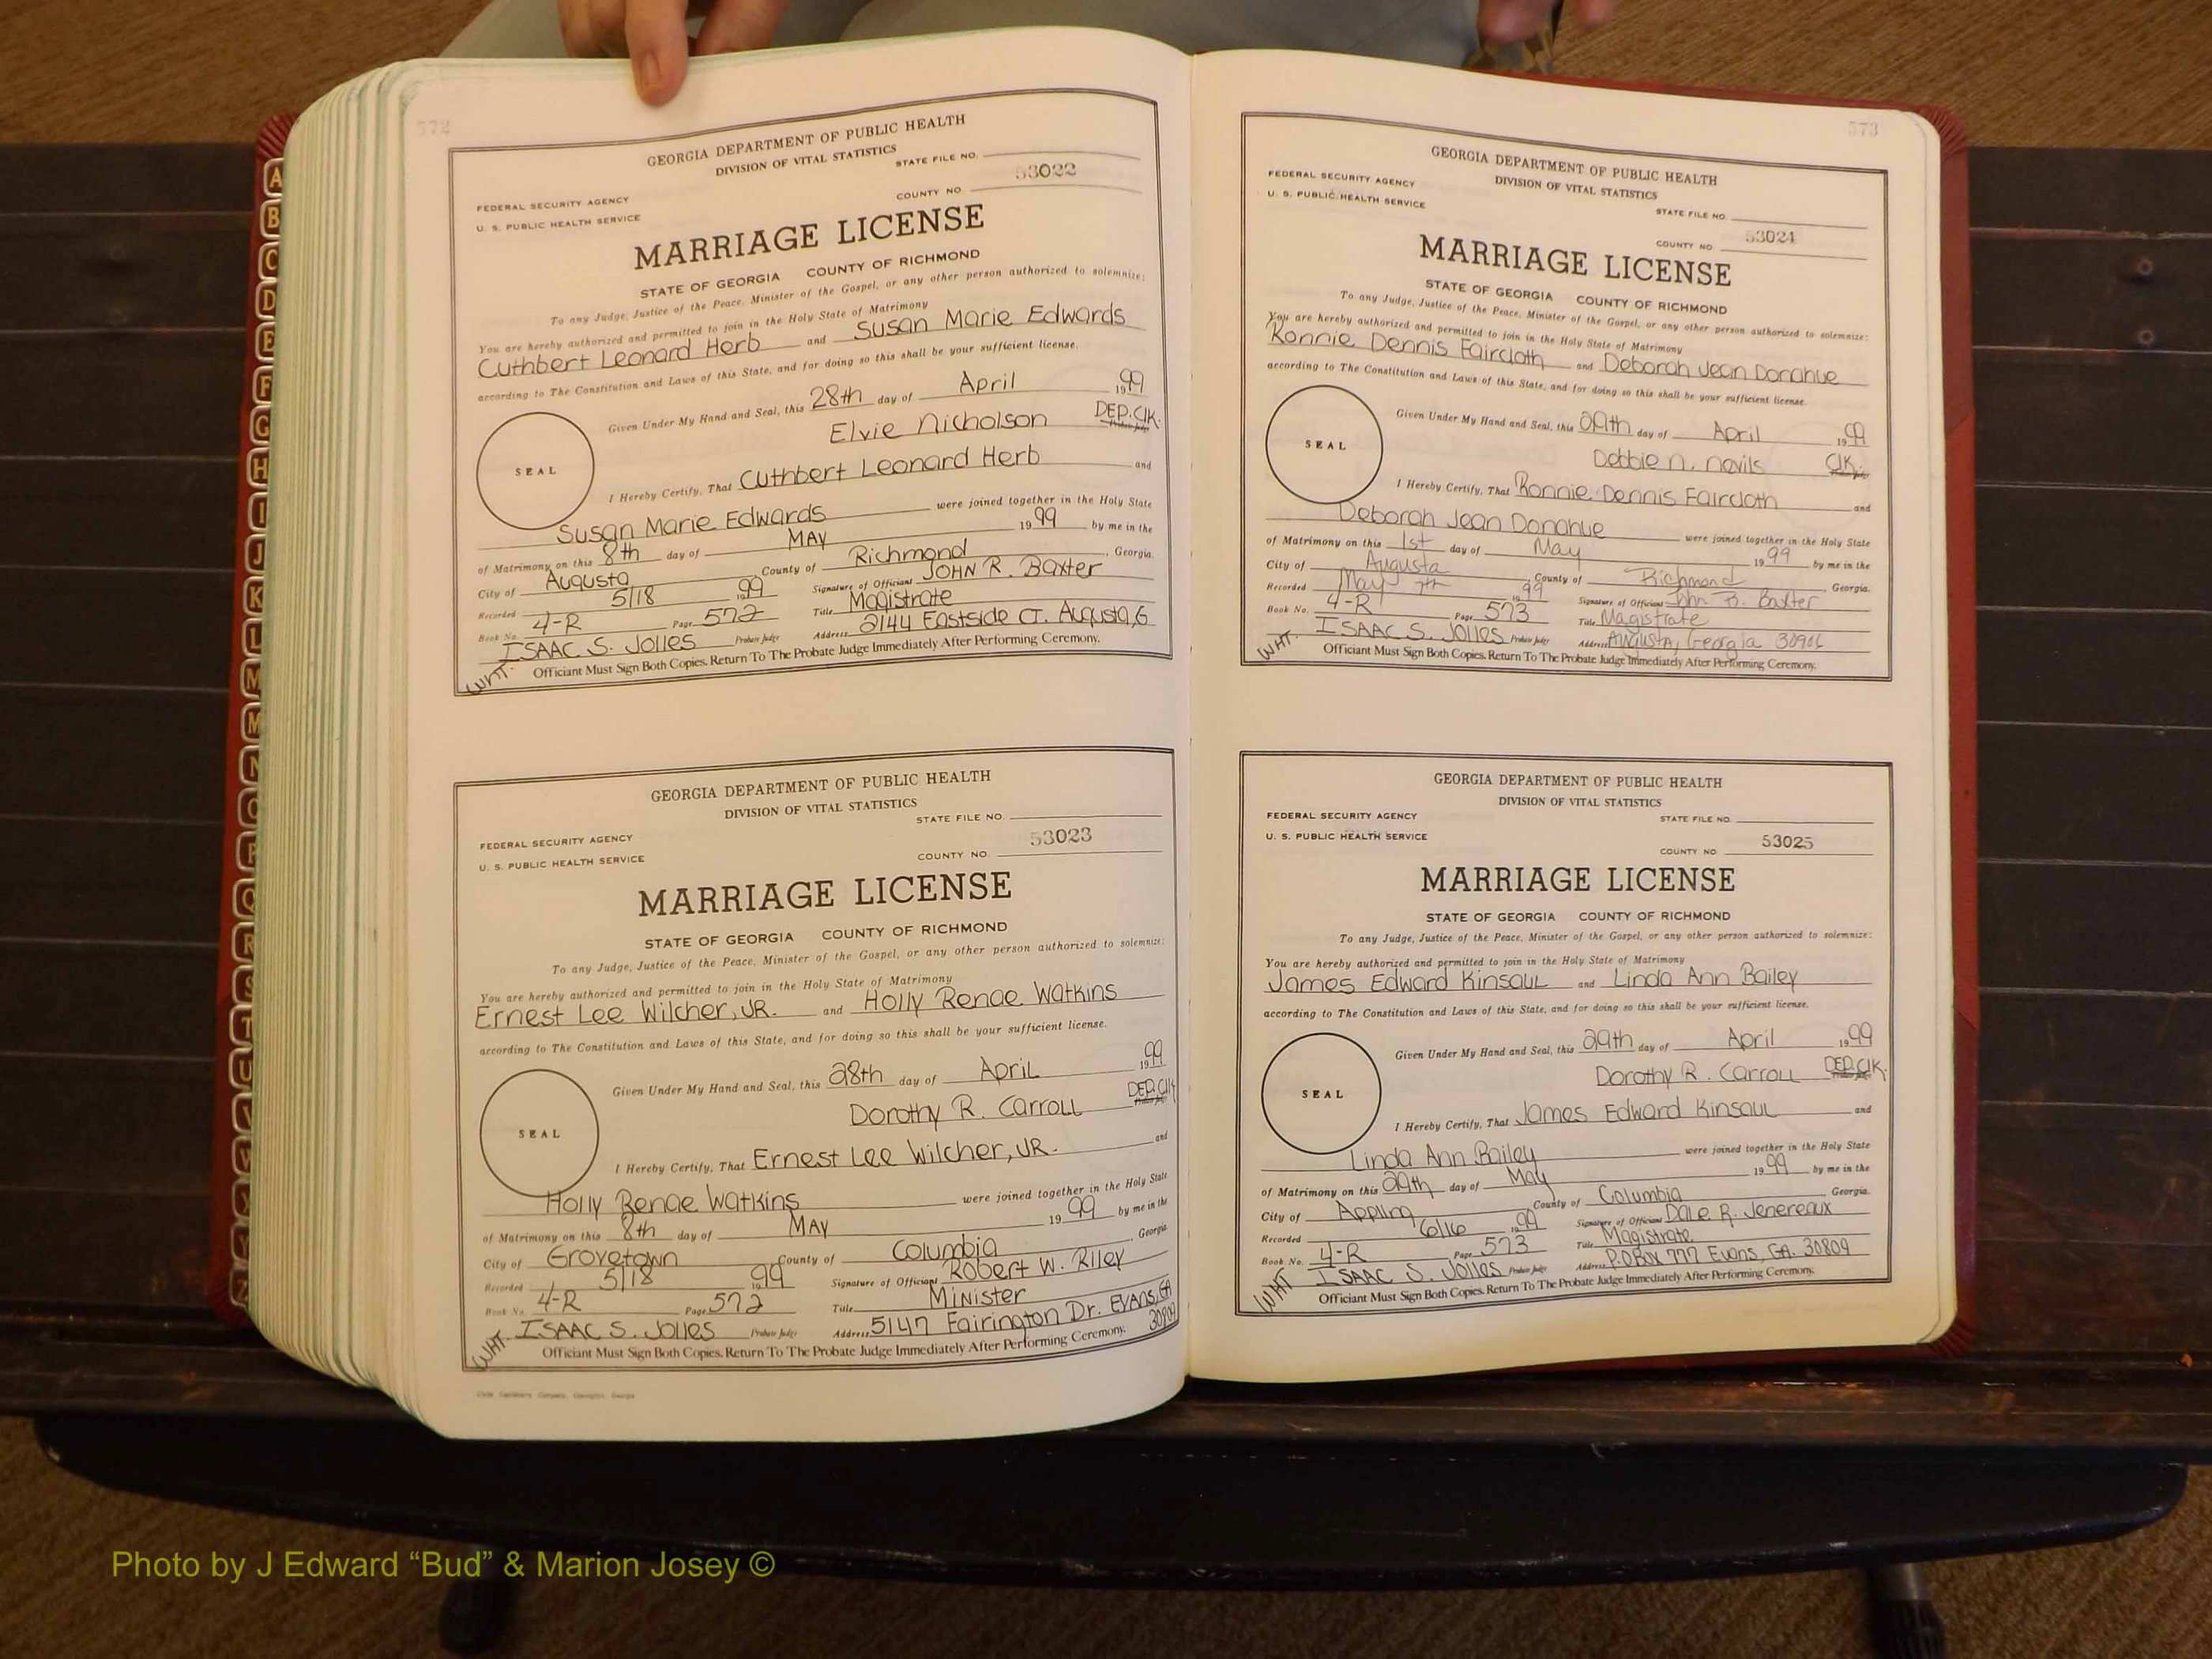 572
GEORGIA DEPARTMENT OF PUBLIC HEALTH
DIVISION OF VITAL STATISTICS
STATE FILE NO.
FEDERAL SECURITY AGENCY
U. S. PUBLIC HEALTH SERVICE
COUNTY NO. 53022
MARRIAGE LICENSE
STATE OF GEORGIA COUNTY OF RICHMOND
To any Judge, Justice of the Peace, Minister of the Gospel, or any other person authorized to solemnize:
You are hereby authorized and permitted to join in the Holy State of Matrimony
Cuthbert Leonard Herb and Susan Marie Edwards
according to The Constitution and Laws of this State, and for doing so this shall be your sufficient license.
Given Under My Hand and Seal, this 28th day of April 1999
Elvie Nicholson DEP. Clk. Probate Judge
SEAL
I Hereby Certify, That Cuthbert Leonard Herb and
Susan Marie Edwards were joined together in the Holy State
of Matrimony on this 8th day of MAY 1999 by me in the
City of Augusta County of Richmond, Georgia.
Recorded 5/18 1999 Signature of Officiant JOHN R. Baxter
Book No. 4-R Page 572 Title Magistrate
ISAAC S. Jolles Probate Judge Address 2144 Eastside CT. Augusta, G
WHT. Officiant Must Sign Both Copies. Return To The Probate Judge Immediately After Performing Ceremony.
GEORGIA DEPARTMENT OF PUBLIC HEALTH
DIVISION OF VITAL STATISTICS
STATE FILE NO.
FEDERAL SECURITY AGENCY
U. S. PUBLIC HEALTH SERVICE
COUNTY NO. 53023
MARRIAGE LICENSE
STATE OF GEORGIA COUNTY OF RICHMOND
To any Judge, Justice of the Peace, Minister of the Gospel, or any other person authorized to solemnize:
You are hereby authorized and permitted to join in the Holy State of Matrimony
Ernest Lee Wilcher, JR. and Holly Renae Watkins
according to The Constitution and Laws of this State, and for doing so this shall be your sufficient license.
Given Under My Hand and Seal, this 28th day of April 1999
Dorothy R. Carroll DEP. Clk Probate Judge
SEAL
I Hereby Certify, That Ernest Lee Wilcher, JR. and
Holly Renae Watkins were joined together in the Holy State
of Matrimony on this 8th day of MAY 1999 by me in the
City of Grovetown County of Columbia, Georgia.
Recorded 5/18 1999 Signature of Officiant Robert W. Riley
Book No. 4-R Page 572 Title Minister
ISAAC S. Jolles Probate Judge Address 5147 Fairington Dr. EVANS, GA 30809
WHT. Officiant Must Sign Both Copies. Return To The Probate Judge Immediately After Performing Ceremony.
573
GEORGIA DEPARTMENT OF PUBLIC HEALTH
DIVISION OF VITAL STATISTICS
FEDERAL SECURITY AGENCY
U. S. PUBLIC HEALTH SERVICE
STATE FILE NO.
COUNTY NO 53024
MARRIAGE LICENSE
STATE OF GEORGIA COUNTY OF RICHMOND
To any Judge, Justice of the Peace, Minister of the Gospel, or any other person authorized to solemnize:
You are hereby authorized and permitted to join in the Holy State of Matrimony
Ronnie Dennis Faircloth and Deborah Jean Donahue
according to The Constitution and Laws of this State, and for doing so this shall be your sufficient license.
Given Under My Hand and Seal, this 29th day of April 1999
Debbie N. Nevils Clk.
SEAL
I Hereby Certify, That Ronnie Dennis Faircloth and
Deborah Jean Donahue were joined together in the Holy State
of Matrimony on this 1st day of May 1999 by me in the
City of Augusta, County of Richmond Georgia.
Recorded May 7th 1999 Signature of Officiant Baxter
Book No. 4-R Page 573 Title Magistrate
ISAAC S. Jolles Probate Judge Address Augusta, Georgia
WHT. Officiant Must Sign Both Copies. Return To The Probate Judge Immediately After Performing Ceremony.
GEORGIA DEPARTMENT OF PUBLIC HEALTH
DIVISION OF VITAL STATISTICS
FEDERAL SECURITY AGENCY
STATE FILE NO.
U. S. PUBLIC HEALTH SERVICE
COUNTY NO 53025
MARRIAGE LICENSE
STATE OF GEORGIA COUNTY OF RICHMOND
To any Judge, Justice of the Peace, Minister of the Gospel, or any other person authorized to solemnize:
You are hereby authorized and permitted to join in the Holy State of Matrimony
James Edward Kinsaul and Linda Ann Bailey
according to The Constitution and Laws of this State, and for doing so this shall be your sufficient license.
Given Under My Hand and Seal, this 29th day of April 1999
Dorothy R. Carroll DEP. Clk.
SEAL
I Hereby Certify, That James Edward Kinsaul and
Linda Ann Bailey were joined together in the Holy State
of Matrimony on this 29th day of May 1999 by me in the
City of Appling County of Columbia Georgia.
Recorded 6/16 1999 Signature of Officiant Dale R. Jenereaux
Book No. 4-R Page 573 Title Magistrate
ISAAC S. Jolles Probate Judge Address P.O Box 777 Evans, GA. 30809
WHT Officiant Must Sign Both Copies. Return To The Probate Judge Immediately After Performing Ceremony.
A
B
C
D
E
F
G
H
I
J
K
L
M
M
N
O
P
Q
R
S
T
U
V
W
X
Y
Z
Photo by J Edward “Bud” & Marion Josey ©